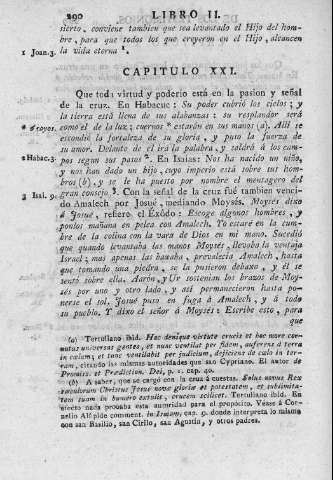 290 LIBRO II.
sierto, conviene tambien que sea levantado el Hijo del hom-
bre, para que todos los que creyeren en el Hijo, alcancen
1 Joan. 3. la vida eterna 1.
CAPITULO XXI.
Que toda virtud y poderio está en la pasion y señal
de la cruz. En Habacuc: Su poder cubrió los cielos; y
la tierra está llena de sus alabanzas: su resplandor será
como el de la luz; cuernos * estarán en sus manos (a). Allí se
escondió la fortaleza de su gloria, y puso la fuerza de
su amor. Delante de él irá la palabra, y saldrá á los cam-
2 Habac. 3. pos segun sus pasos 2. En Isaias: Nos ha nacido un niño,
y nos han dado un hijo, cuyo imperio está sobre sus hom-
bros (b), y se le ha puesto por nombre el mentagero del
3 Isai. 9. gran consejo 3. Con la señal de la cruz fué tambien venci-
do Amalech por Josué, mediando Moysés. Moysés dixo
á Josué, refiere el Exôdo: Escoge algunos hombres, y
ponlos mañana en pelea con Amalech. Yo estaré en la cum-
bre de la colina con la vara de Dios en mi mano. Sucedió
que quando levantaba las manos Moysés, llevaba la ventaja
Israel; mas apenas las baxaba, prevalecia Amalech, hasta
que tomando una piedra, se la pusieron debaxo, y él se
sentó sobre ella. Aarón, y Ur sostenian los brazos de Moy-
sés por uno y otro lado, y así permanecieron hasta po-
nerse el sol. Josué puso en fuga á Amalech, y á todo
su pueblo. Y dixo el señor á Moysés: Escribe esto, para
que
(a) Tertuliano ibid. Hac denique virtute crucis et hoc more cor-
nutus universas gentes, et nunc ventilat per fidem, auferens á terra
in cœlum; et tunc ventilabit per judicium, dejiciens de cœlo in ter-
ram, citando las mismas autoridades que san Cypriano. El autor de
Promiss. et Prædiction. Dei, p. 2. cap. 40.
(b) A saber, que se cargó con la cruz á cuestas. Solus novus Rex
sæculorum Christus Jesus novæ gloriæ et potestatem, et sublimita-
tem suam in humero extulit, crucem scilicet. Tertuliano ibid. En
efecto nada prouaba esta autoridad para el propósito. Véase á Cor-
nelio Alápide comment. in Isaiam, cap. 9. donde interpreta lo mismo
con san Basilio, san Cirilo, san Agustin, y otros padres.